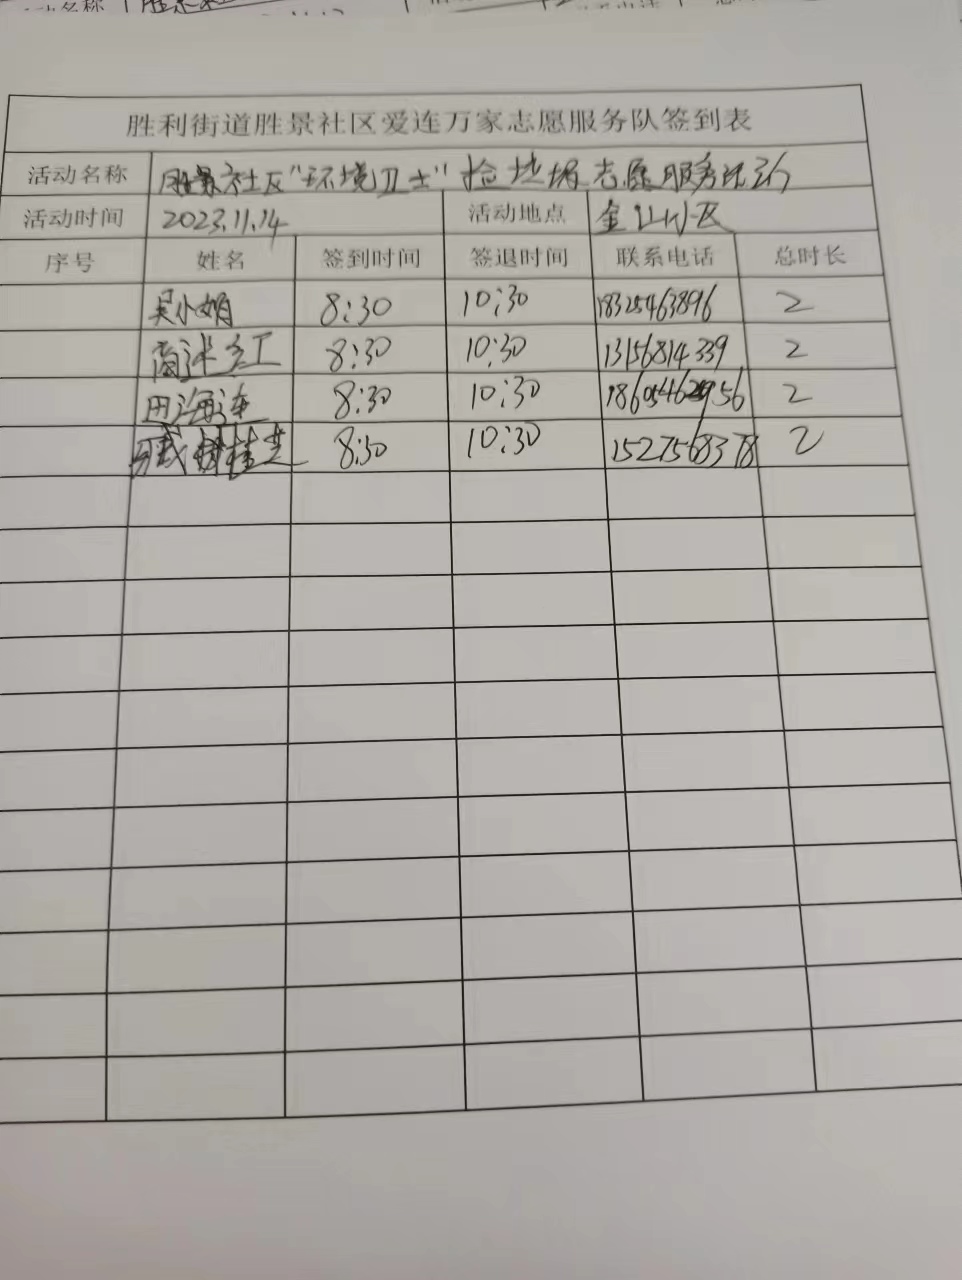 胜利街道胜景社区爱连万家志愿服务队签到表
活动名称 胜景社区"环境卫士"捡垃圾志愿服务活动
活动时间 2023.11.14 活动地点 金山小区
序号 姓名 签到时间 签退时间 联系电话 总时长
吴小娟 8:30 10:30 18325463896 2
8:30 10:30 13156814339 2
田海连 8:30 10:30 2
桂芝 8:30 10:30 15275683778 2